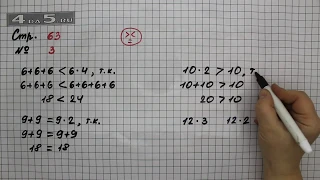 4DA5.RU
Стр. 63
№ 3
> <
=
6+6+6 < 6·4, т.к.
6+6+6 < 6+6+6+6
18 < 24
9+9 = 9·2, т.к.
9+9 = 9+9
18 = 18
10·2 > 10, т.
10+10 > 10
20 > 10
12·3 12·2